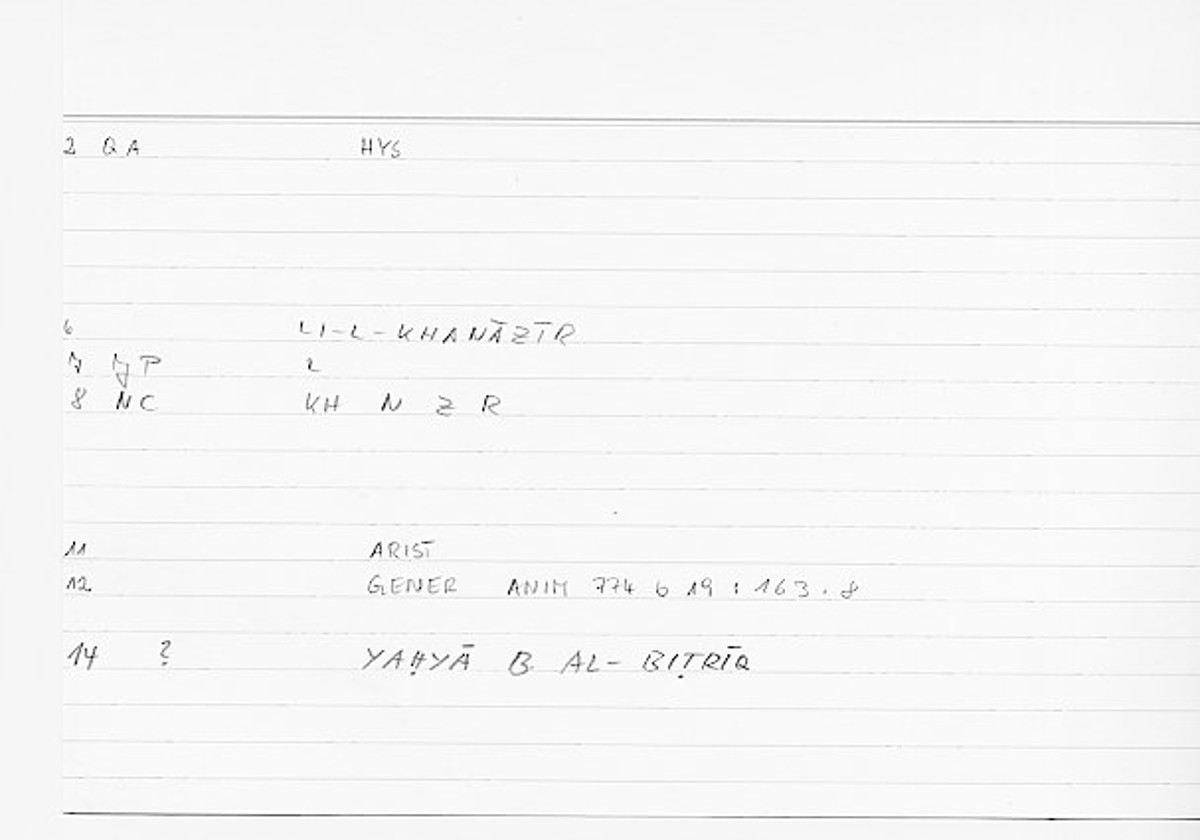 2 QA HYS
6 LI-L-KHANĀZĪR
7 JP 2
8 NC KH N Z R
11 ARIST
12 GENER ANIM 774 b 19 : 163.8
14 ? YAḤYĀ B AL-BIṬRĪQ